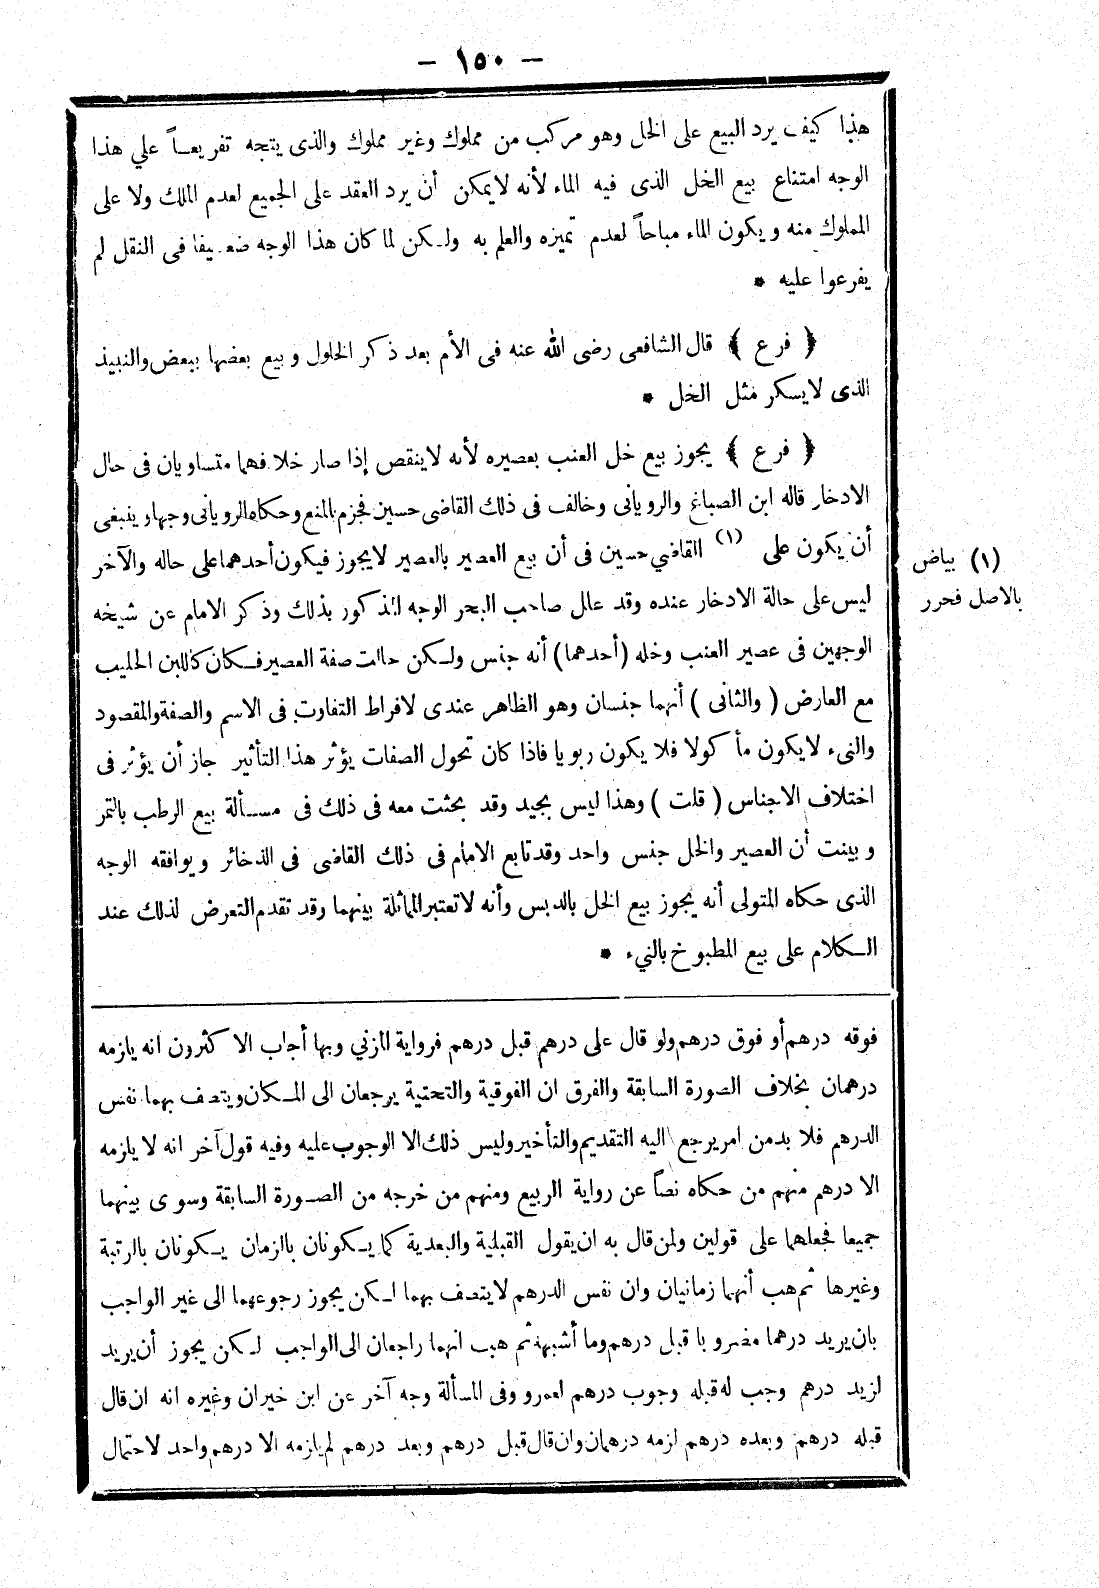 — ١٥٠ —
هذا كيف يرد البيع على الخل وهو مركب من مملوك وغير مملوك والذى يتجه تفريعاً علي هذا
الوجه امتناع بيع الخل الذى فيه الماء لأنه لايمكن أن يرد العقد على الجميع لعدم الملك ولا على
المملوك منه ويكون الماء مباحاً لعدم تميزه والعلم به ولكن لما كان هذا الوجه ضعيفا فى النقل لم
يفرعوا عليه *
﴿ فرع ﴾ قال الشافعى رضى الله عنه فى الأم بعد ذكر الخلول وبيع بعضها ببعض والنبيذ
الذى لايسكر مثل الخل *
﴿ فرع ﴾ يجوز بيع خل العنب بعصيره لأنه لاينقص إذا صار خلا فهما متساويان فى حال
الادخار قاله ابن الصباغ والرويانى وخالف فى ذلك القاضى حسين فجزم بالمنع وحكاه الرويانى وجها وينبغى
أن يكون على (١) القاضي حسين فى أن بيع العصير بالعصير لايجوز فيكون أحدهما على حاله والآخر
ليس على حالة الادخار عنده وقد علل صاحب البحر الوجه المذكور بذلك وذكر الامام عن شيخه
الوجهين فى عصير العنب وخله (أحدهما) أنه جنس ولكن حالت صفة العصير فكان كاللبن الحليب
مع العارض (والثانى) أنهما جنسان وهو الظاهر عندى لافراط التفاوت فى الاسم والصفة والمقصود
والنىء لايكون مأكولا فلا يكون ربويا فاذا كان تحول الصفات يؤثر هذا التأثير جاز أن يؤثر فى
اختلاف الاجناس (قلت) وهذا ليس بجيد وقد بحثت معه فى ذلك فى مسألة بيع الرطب بالتمر
وبينت أن العصير والخل جنس واحد وقد تابع الامام فى ذلك القاضى فى الذخائر ويوافقه الوجه
الذى حكاه المتولى أنه يجوز بيع الخل بالدبس وأنه لاتعتبر المماثلة بينهما وقد تقدم التعرض لذلك عند
الكلام على بيع المطبوخ بالنيء *
(١) بياض
بالاصل فحرر
فوقه درهم أو فوق درهم ولو قال على درهم قبل درهم فرواية المزني وبها أجاب الاكثرون انه يلزمه
درهمان بخلاف الصورة السابقة والفرق ان الفوقية والتحتية يرجعان الى المكان ويتصف بهما نفس
الدرهم فلا بد من امر يرجع اليه التقديم والتأخير وليس ذلك الا الوجوب عليه وفيه قول آخر انه لا يلزمه
الا درهم منهم من حكاه نصاً عن رواية الربيع ومنهم من خرجه من الصورة السابقة وسوى بينهما
جميعا فجعلهما على قولين ولمن قال به ان يقول القبلية والبعدية كما يكونان بالزمان يكونان بالرتبة
وغيرها ثم هب أنهما زمانيان وان نفس الدرهم لايتصف بهما لكن يجوز رجوعهما الى غير الواجب
بان يريد درهما مضروبا قبل درهم وما أشبهه ثم هب انهما راجعان الى الواجب لكن يجوز أن يريد
لزيد درهم وجب له قبله وجوب درهم لعمرو وفى المسألة وجه آخر عن ابن خيران وغيره انه ان قال
قبله درهم وبعده درهم لزمه درهمان وان قال قبل درهم وبعد درهم لم يلزمه الا درهم واحد لاحتمال